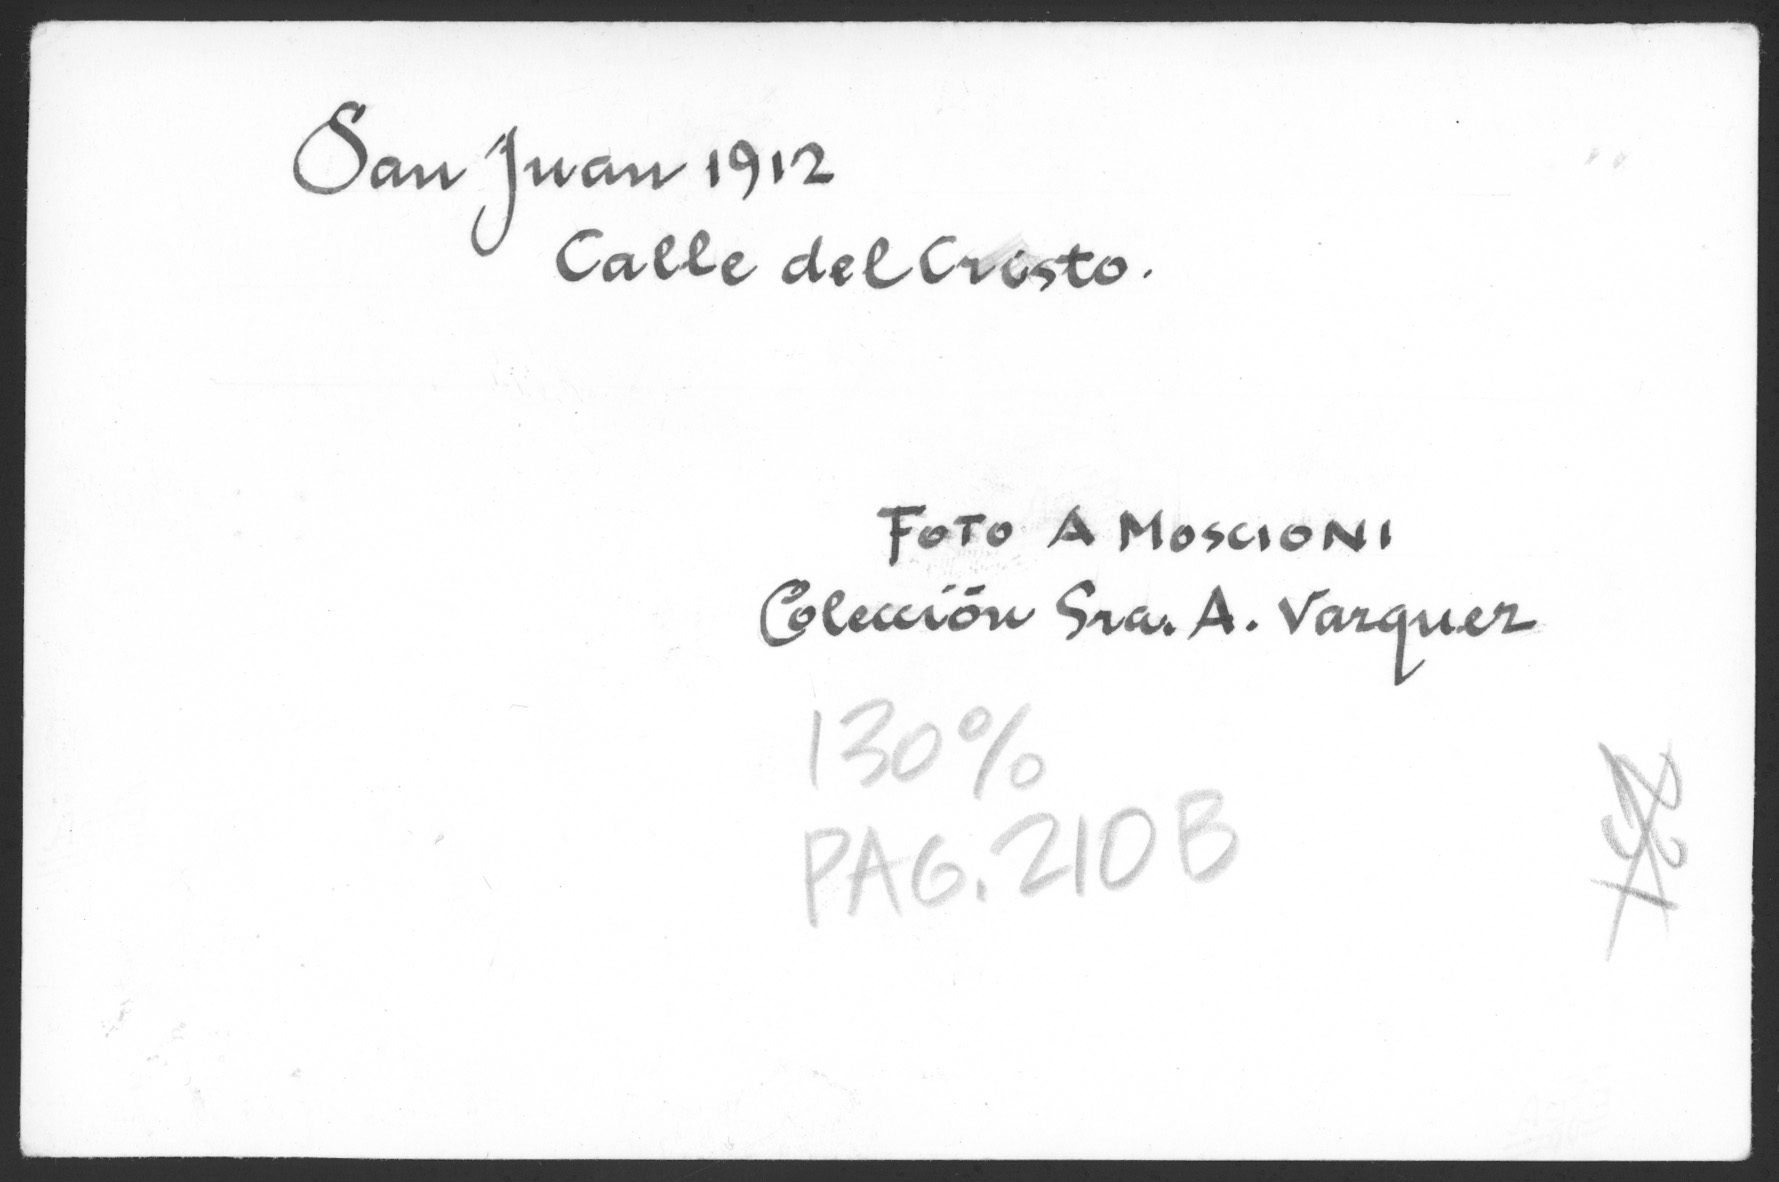 San Juan 1912
Calle del Cristo.
FOTO A MOSCIONI
Colección Sra. A. Vazquez
130%
PAG. 210 B